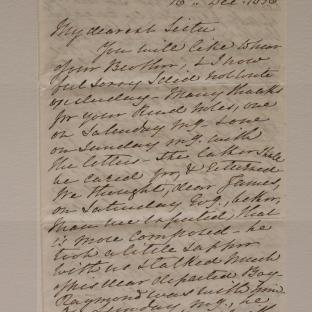 16th Dec. 1856
My dearest Sister
You will like when
of our Brother, & I now
sorry I did not write
yesterday - Many thanks
for your kind notes, one
on Saturday mg. & one
on Sunday mg. with
the letters - The latter shall
be cared for, & returned
We thought, dear James,
on Saturday Evg.,
than we expected that
is more composed - he
took a little
with us & talked much
of his dear departed Boy
Raymond was with him
Sunday mg., he